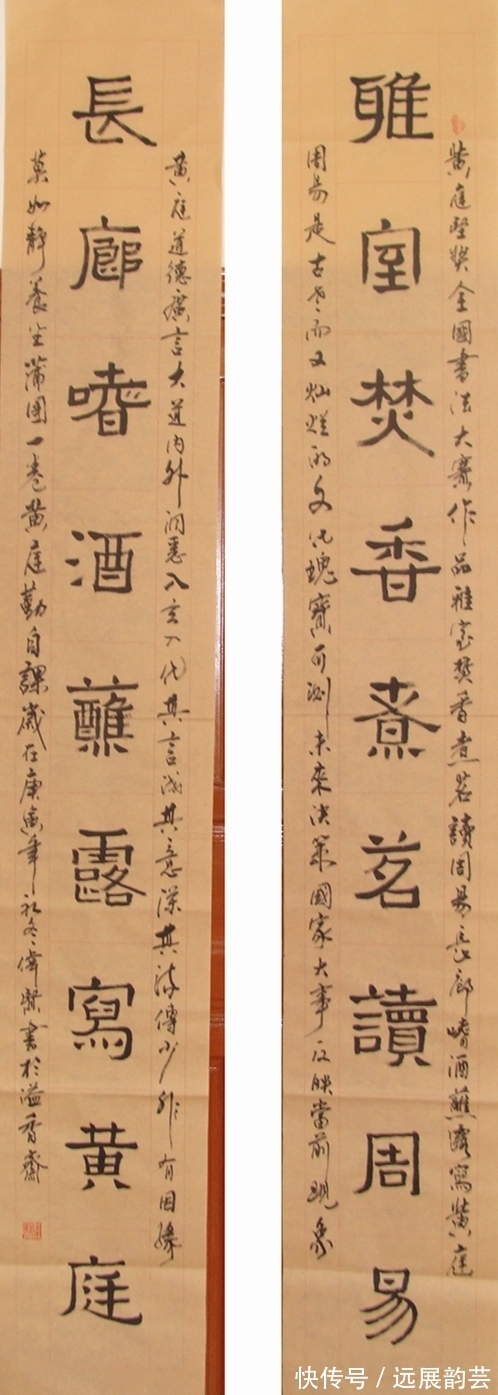 黄庭堅奖全國書法大賽作品雅室焚香煮茗讀周易長廊嗜酒蘸露寫黄庭
雅室焚香煮茗讀周易
周易是古老而又灿烂的文化瑰寶可測未来决策國家大事反映當前現象
黄庭道德廣言大道内外洞悉入玄入化其言其意深其流傳少非有因緣
長廊嗜酒蘸露寫黄庭
莫如静養坐蒲團一卷黄庭勤自課歲在庚寅年初冬偉書於溢香齋
快传号/远展韵芸